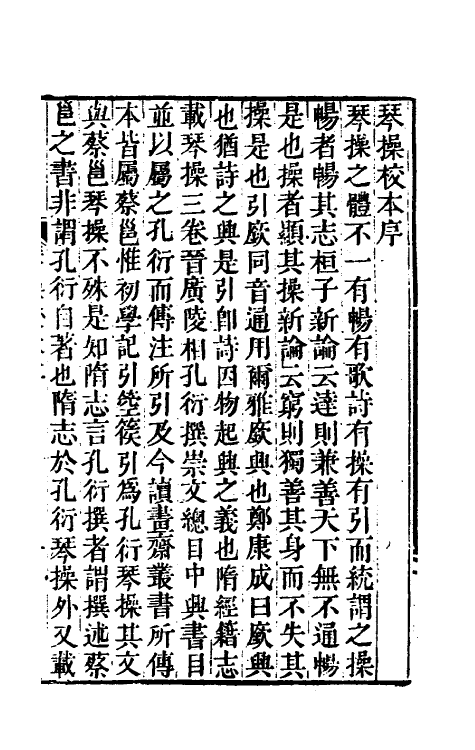 琴操校本序
琴操之體不一有暢有歌詩有操有引而統謂之操
暢者暢其志桓子新論云達則兼善天下無不通暢
是也操者顯其操新論云窮則獨善其身而不失其
操是也引廞同音通用爾雅廞興也鄭康成曰廞興
也猶詩之興是引卽詩因物起興之義也隋經籍志
載琴操三卷晉廣陵相孔衍撰崇文總目中興書目
並以屬之孔衍而傳注所引及今讀畫齋叢書所傳
本皆屬蔡邕惟初學記引箜篌引爲孔衍琴操其文
與蔡邕琴操不殊是知隋志言孔衍撰者謂撰述蔡
邕之書非謂孔衍自著也隋志於孔衍琴操外又載